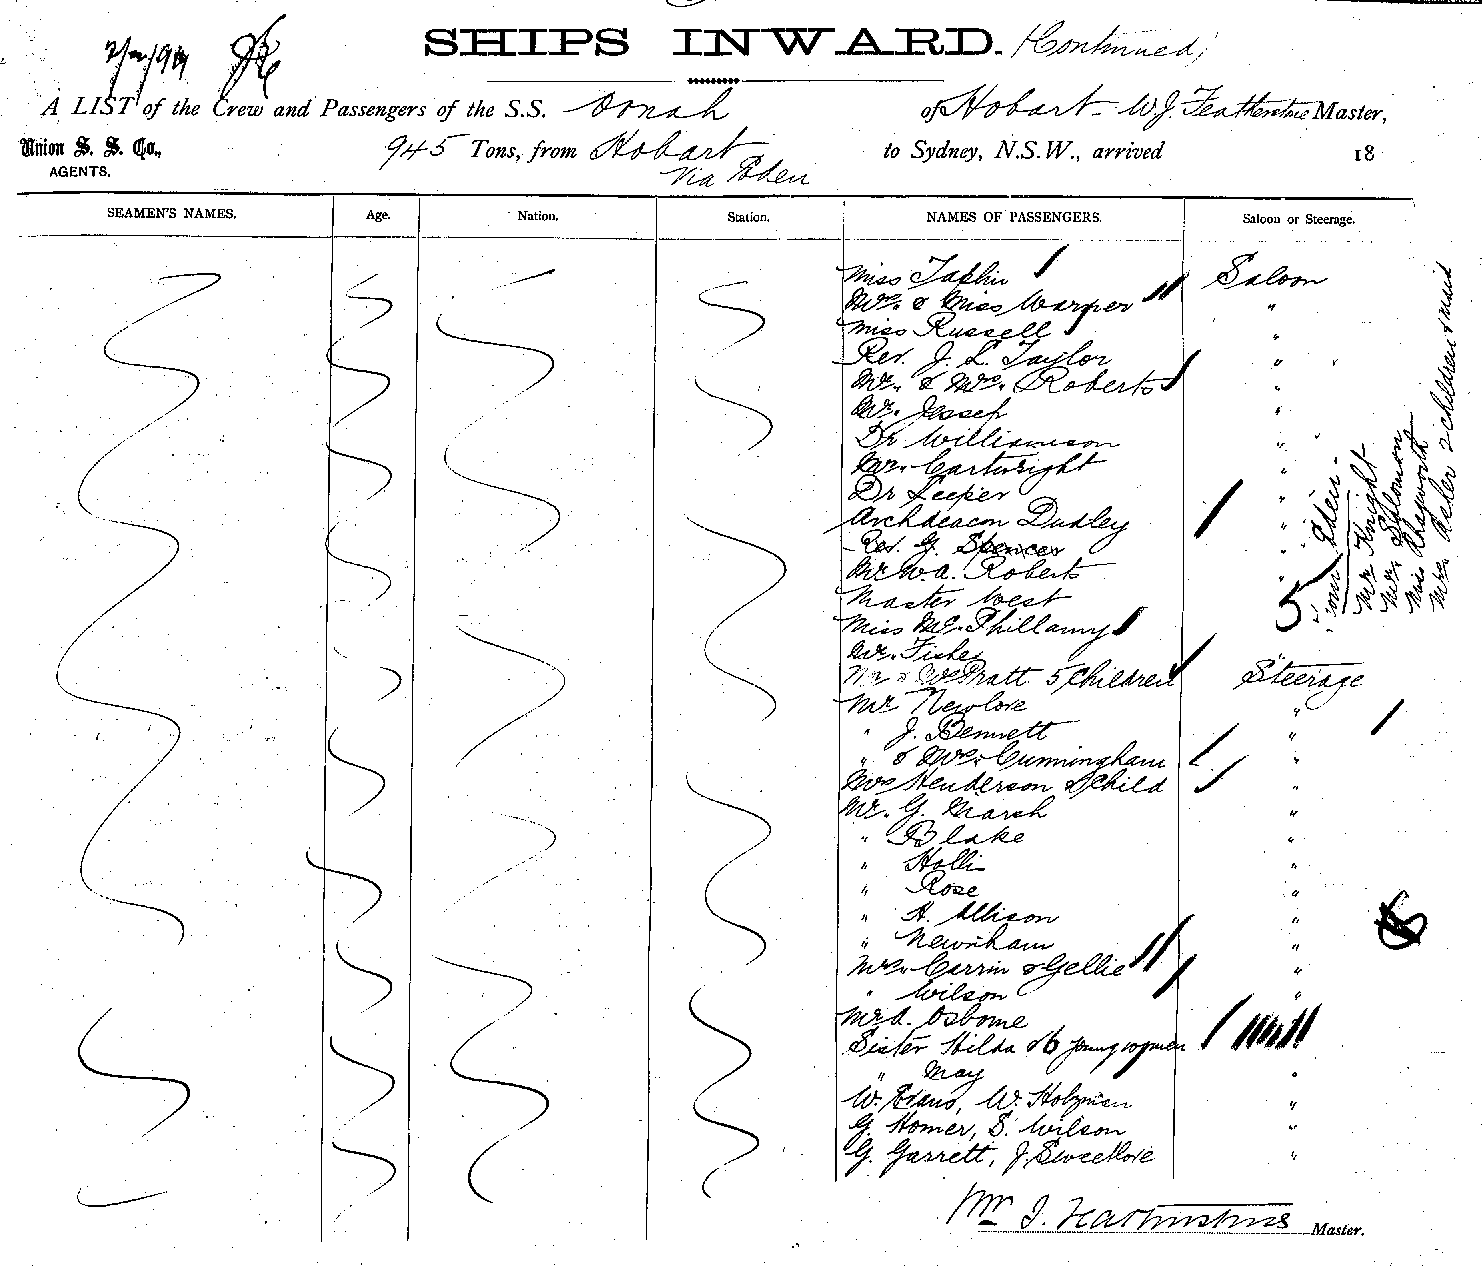 SHIPS INWARD. (Continued)
A LIST of the Crew and Passengers of the S.S. Oonah of Hobart W.J. Featherstone Master,
Union S. S. Co., 945 Tons, from Hobart to Sydney, N.S.W., arrived 18
AGENTS.
Via Eden
SEAMEN'S NAMES. Age. Nation. Station. NAMES OF PASSENGERS. Saloon or Steerage.
Miss Saloon
Mrs. & Miss Warper "
Miss Russell "
Rev. J. L. Taylor "
Mr. & Mrs. Roberts "
Mr. Jessep "
Dr Williamson "
Mr. Cartwright "
Dr Leeper "
Archdeacon Dudley "
Rev. G. Spencer "
Mr W.A. Roberts "
Master West "
Miss McPhillamy "
Mr. Fisher "
Mr & Mrs Pratt 5 Children Steerage
Mr Newlove "
" J. Bennett "
" & Mrs Cunningham "
Mrs Henderson & Child "
Mr. G. Marsh "
" Blake "
" Hollis "
" Rose "
" A. Allison "
" Newnham "
Mrs. Carrin & Gellie "
" Wilson "
Mr A. Osborne
Sister Hilda & 6 young women
" May "
W. Evans, W. Holzman "
G. Homer, S. Wilson "
G. Garrett, J. Sweetlove "
Master.
5
from Eden
Mr Knight
Mr. Solomon
Miss
Mrs 2 children & maid